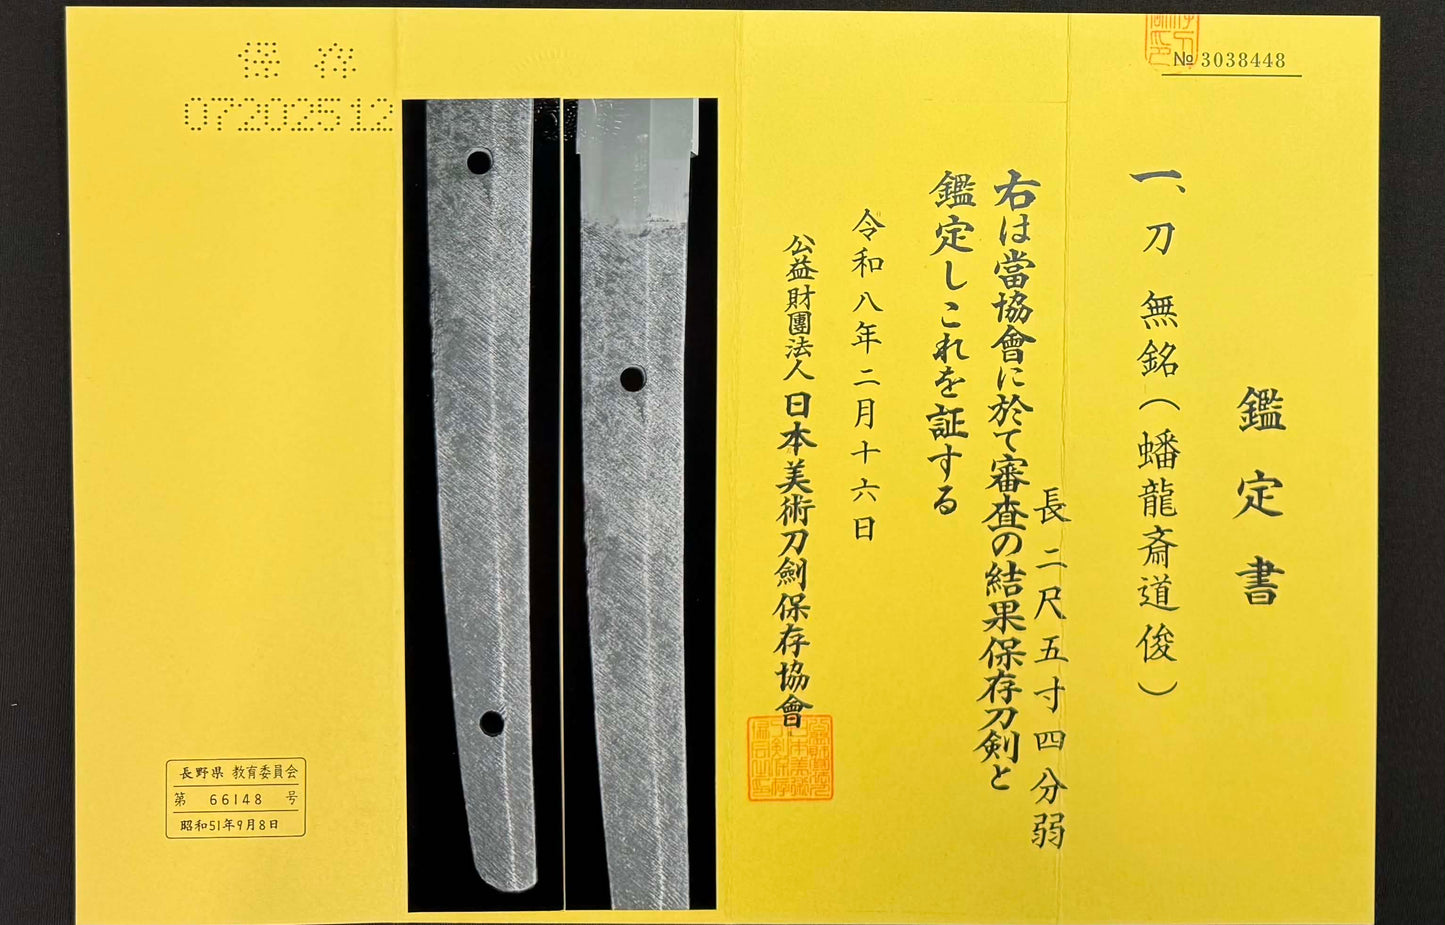 № 3038448
鑑定書
一、刀 無銘(蟠龍斎道俊)
長 二尺五寸四分弱
右は當協會に於て審査の結果保存刀剣と
鑑定しこれを証する
令和八年二月十六日
公益財團法人日本美術刀劍保存協會
保存
07202512
長野県 教育委員会
第 66148 号
昭和51年9月8日